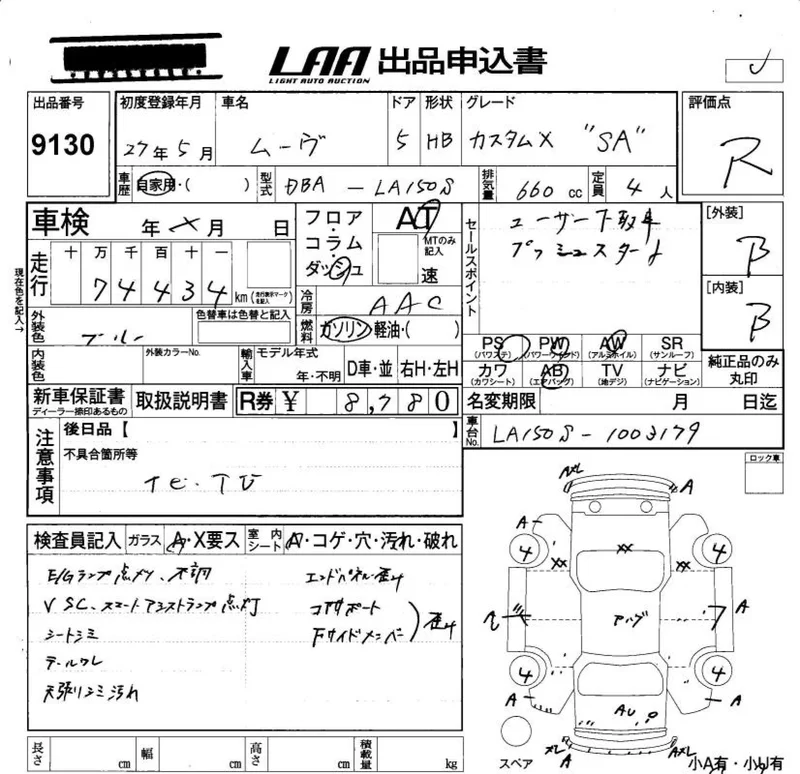 LAA 出品申込書
LIGHT AUTO AUCTION
出品番号 9130
初度登録年月 27年5月
車名 ムーヴ
ドア 5
形状 HB
グレード カスタムX "SA"
評価点 R
車歴 自家用・( )
型式 DBA - LA150S
排気量 660 cc
定員 4 人
車検 年 メ 月 日
フロア・コラム・ダッシュ
AT
MTのみ記入 速
セールスポイント
ユーザー下取車
プッシュスタート
[外装] B
[内装] B
現在色を記入→
走行 十 万 千 百 十 一
7 4 4 3 4 km (走行表示マークを記入)
冷房 AAC
燃料 ガソリン・軽油・( )
外装色 ブルー
色替車は色替と記入
内装色
外装カラーNo.
輸入車 モデル年式 年・不明
D車・並 右H・左H
PS (パワステ) PW (パワーウィンド) AW (アルミホイル) SR (サンルーフ)
カワ (カワシート) AB (エアバッグ) TV (地デジ) ナビ (ナビゲーション)
純正品のみ丸印
新車保証書 ディーラー捺印あるもの
取扱説明書
R券 ¥ 8,780
名変期限 月 日迄
車台No. LA150S-1003179
注意事項
後日品【 】
不具合箇所等
ナビ・TV
ロック車
検査員記入 ガラス A・X要ス 室内シート A・コゲ・穴・汚れ・破れ
E/Gランプ点灯、不調
VSC、スマートアシストランプ点灯
シートシミ
テールワレ
天張りシミ汚れ
エンドパネル歪み
コアサポート
Fサイドメンバー
歪み
A
A
4
4
XX
XX
XX
A
アハゲ
A
4
4
A
A
AU
A
スペア
小A有・小U有
長さ cm 幅 cm 高さ cm 積載量 kg